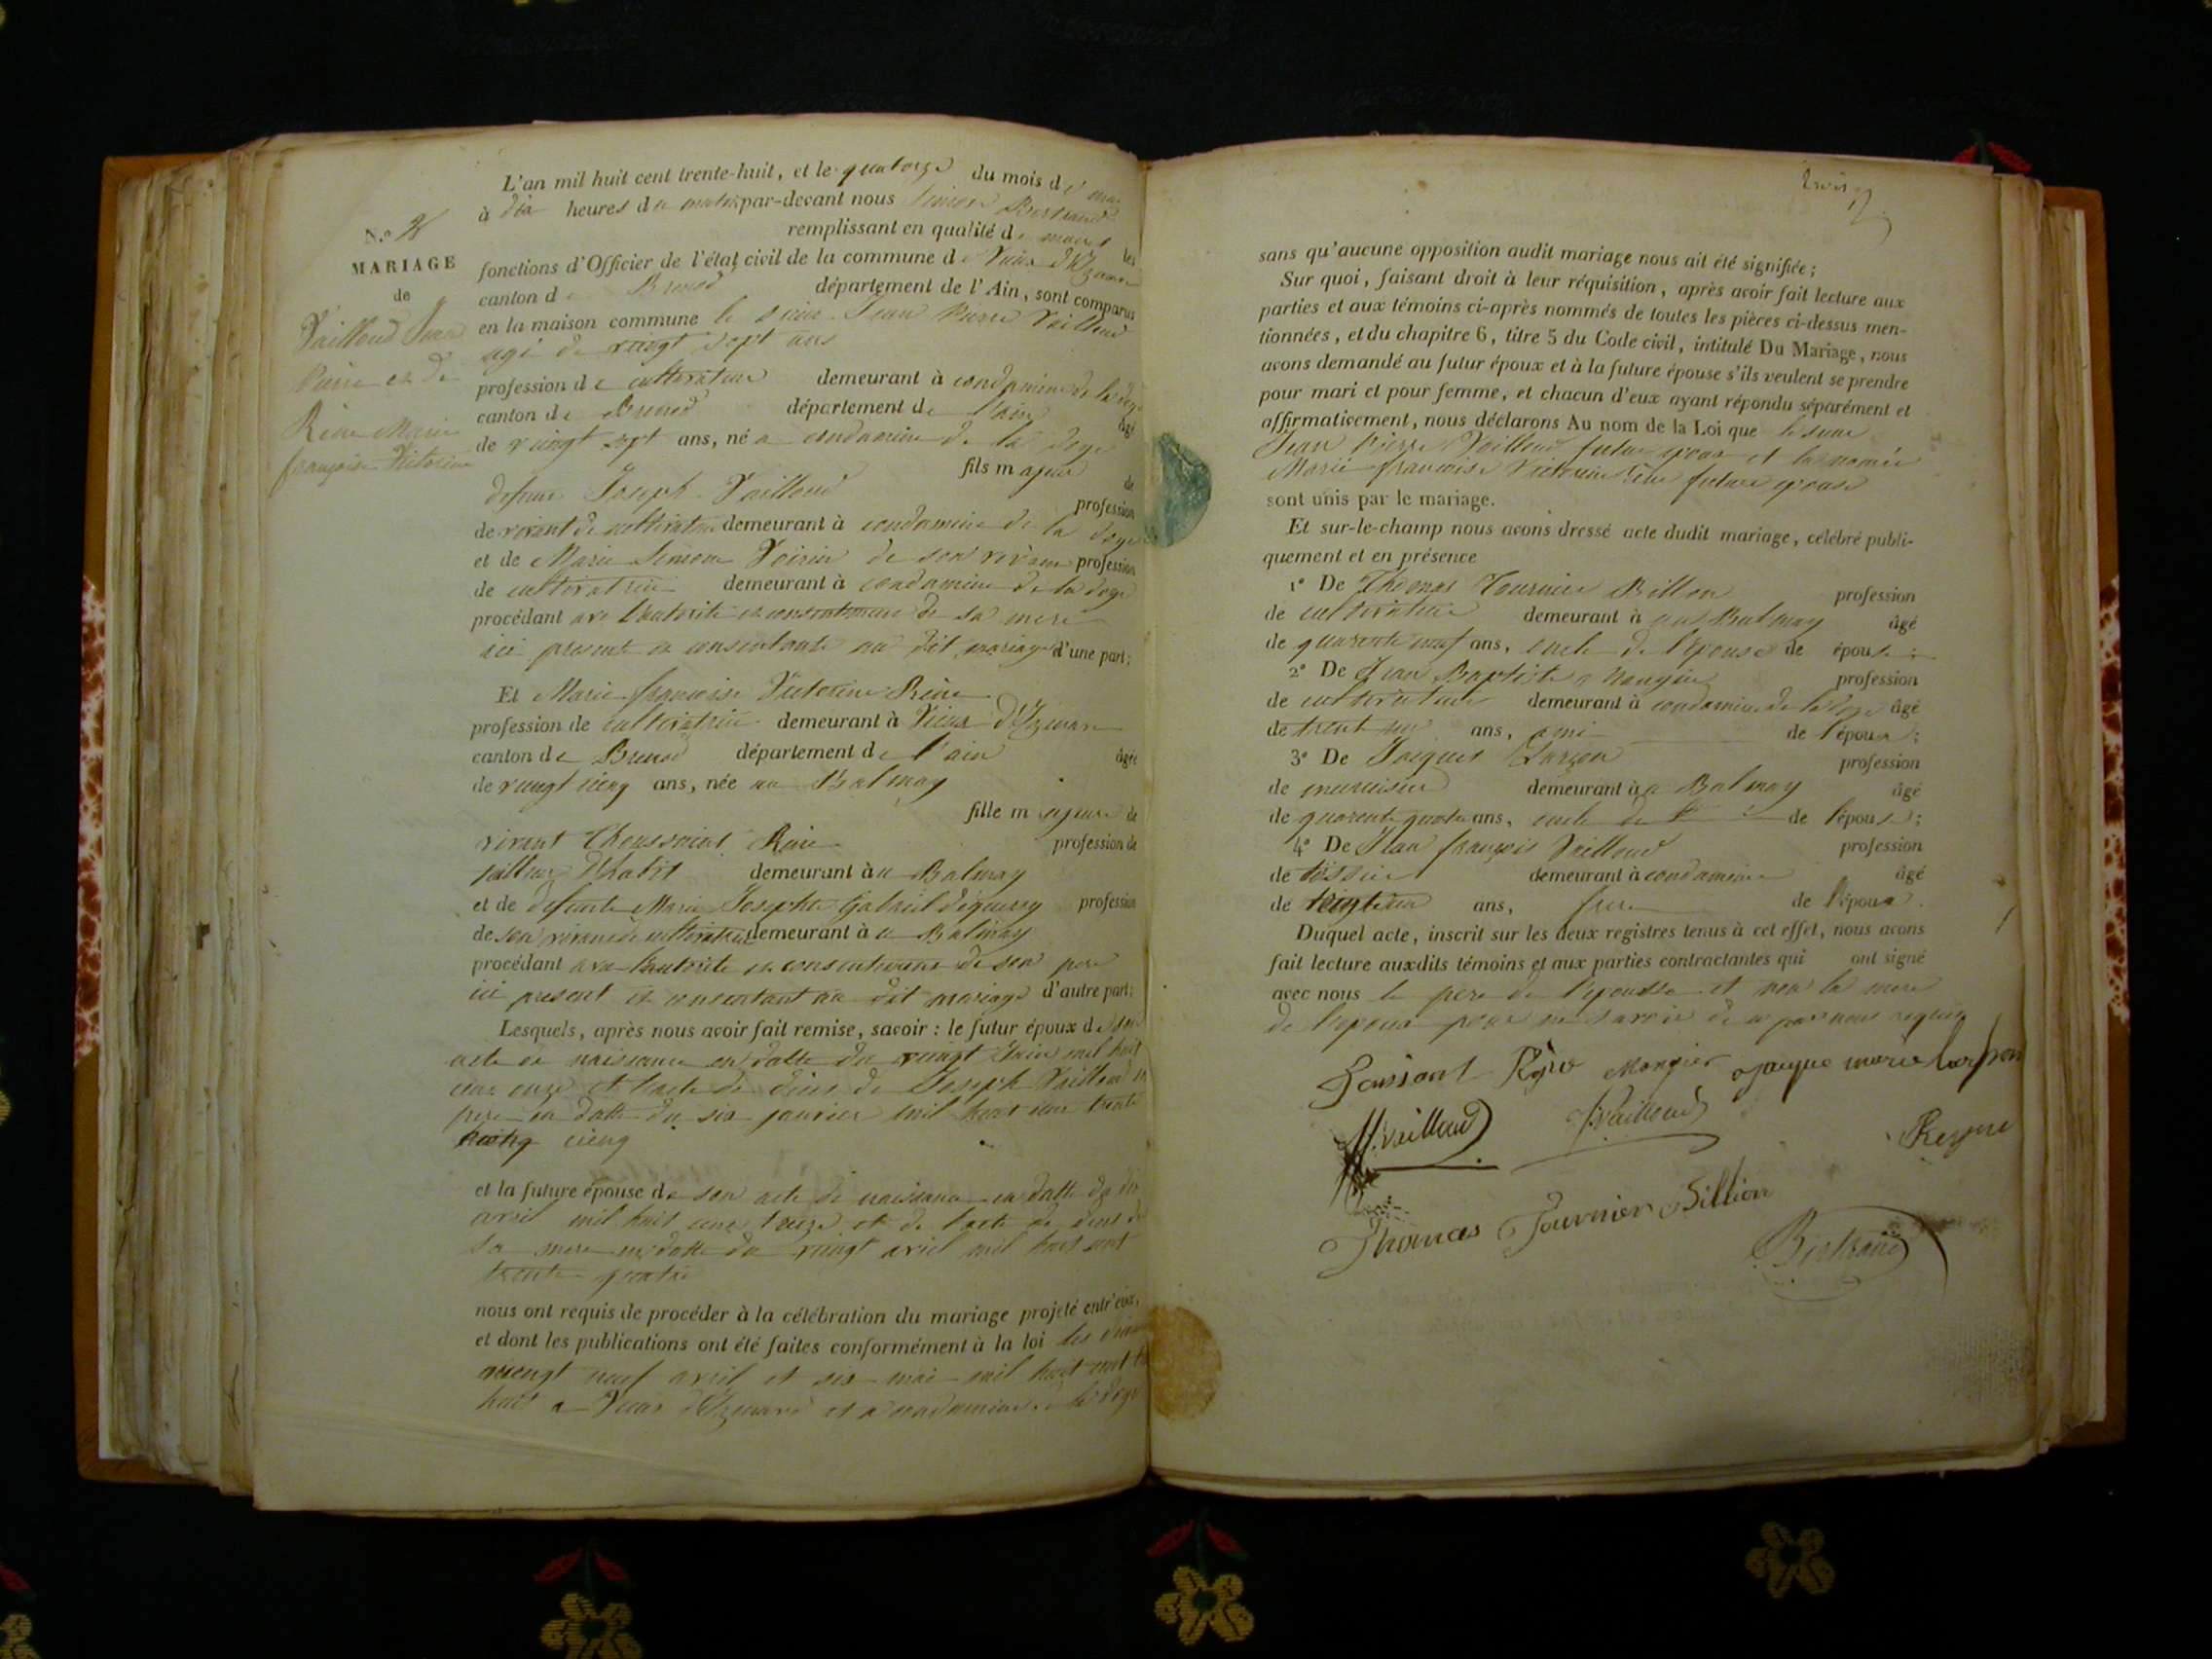 N.o
MARIAGE
de
Vailloud Jean
Pierre et de
Rêne Marie
françoise Victorine
L'an mil huit cent trente-huit, et le quatorze du mois de mai
à dix heures du matin par-devant nous Simon Bertrand
remplissant en qualité de maire les
fonctions d'Officier de l'état civil de la commune de Vieux d'Izenave
canton de Brenod département de l'Ain, sont comparus
en la maison commune le sieur Jean Pierre Vailloud
agé de vingt sept ans
profession de cultivateur demeurant à condamine de la doye
canton de Brenod département de l'ain âgé
de vingt sept ans, né a condamine de la doye
fils majeur de
defunt Joseph Vailloud profession
de vivant de cultivateur demeurant à condamine de la doye
et de Marie Simone Voirin de son vivant profession
de cultivatrice demeurant à condamine de la doye
procédant avec l'autorité et consentement de sa mere
ici presente et consentante au dit mariage d'une part;
Et Marie françoise Victorine Rêne
profession de cultivatrice demeurant à Vieux d'Izenave
canton de Brenod département de l'ain âgée
de vingt cinq ans, née au Balmay
fille majeure de
vivant Thoussaint Rêne profession de
tailleur d'habit demeurant à u Balmay
et de defunte Marie Josephte Gabriel déguerry profession
de son vivant de cultivatrice demeurant à u Balmay
procédant avec l'autorité et consentement de son pere
ici present et consentant au dit mariage d'autre part;
Lesquels, après nous avoir fait remise, savoir: le futur époux de son
acte de naissance en datte du vingt Juin mil huit
cent onze et l'acte de déces de Joseph Vailloud
pere en datte du six janvier mil huit cent trente
cinq
et la future épouse de son acte de naissance en datte du dix
avril mil huit cent treize et de l'acte de déces de
sa mere en datte du vingt avril mil huit cent
trente quatre
nous ont requis de procéder à la célébration du mariage projeté entr'eux,
et dont les publications ont été faites conformément à la loi les
vingt neuf avril et six mai mil huit cent
huit a Vieux d'Izenave et a condamine de la doye
sans qu'aucune opposition audit mariage nous ait été signifiée;
Sur quoi, faisant droit à leur réquisition, après avoir fait lecture aux
parties et aux témoins ci-après nommés de toutes les pièces ci-dessus men-
tionnées, et du chapitre 6, titre 5 du Code civil, intitulé Du Mariage, nous
avons demandé au futur époux et à la future épouse s'ils veulent se prendre
pour mari et pour femme, et chacun d'eux ayant répondu séparément et
affirmativement, nous déclarons Au nom de la Loi que le sieur
Jean Pierre Vailloud futur epoux et la nomée
Marie françoise Victorine Rêne future epouse
sont unis par le mariage.
Et sur-le-champ nous avons dressé acte dudit mariage, célébré publi-
quement et en présence
1° De Thomas Tournier Billon profession
de cultivateur demeurant à au Balmay âgé
de quarente neuf ans, oncle de l'épouse de épouse;
2° De Jean Baptiste Mongin profession
de cultivateur demeurant à condamine de la doye âgé
de trente ans, ami de l'époux;
3° De Jacques profession
de menuisier demeurant à u Balmay âgé
de quarente quatre ans, oncle de de l'épouse;
4° De Jean françois Vailloud profession
de tissier demeurant à condamine âgé
de ans, frere de l'époux.
Duquel acte, inscrit sur les deux registres tenus à cet effet, nous avons
fait lecture auxdits témoins et aux parties contractantes qui ont signé
avec nous le pere de l'epousse et non la mere
de l'epoux pour ne savoir de ce par nous requis
Toussant Rêne Mongier Jacque marie
Vailloud J Vailloud Reyne
Thomas Tournier Billion
Bertrand